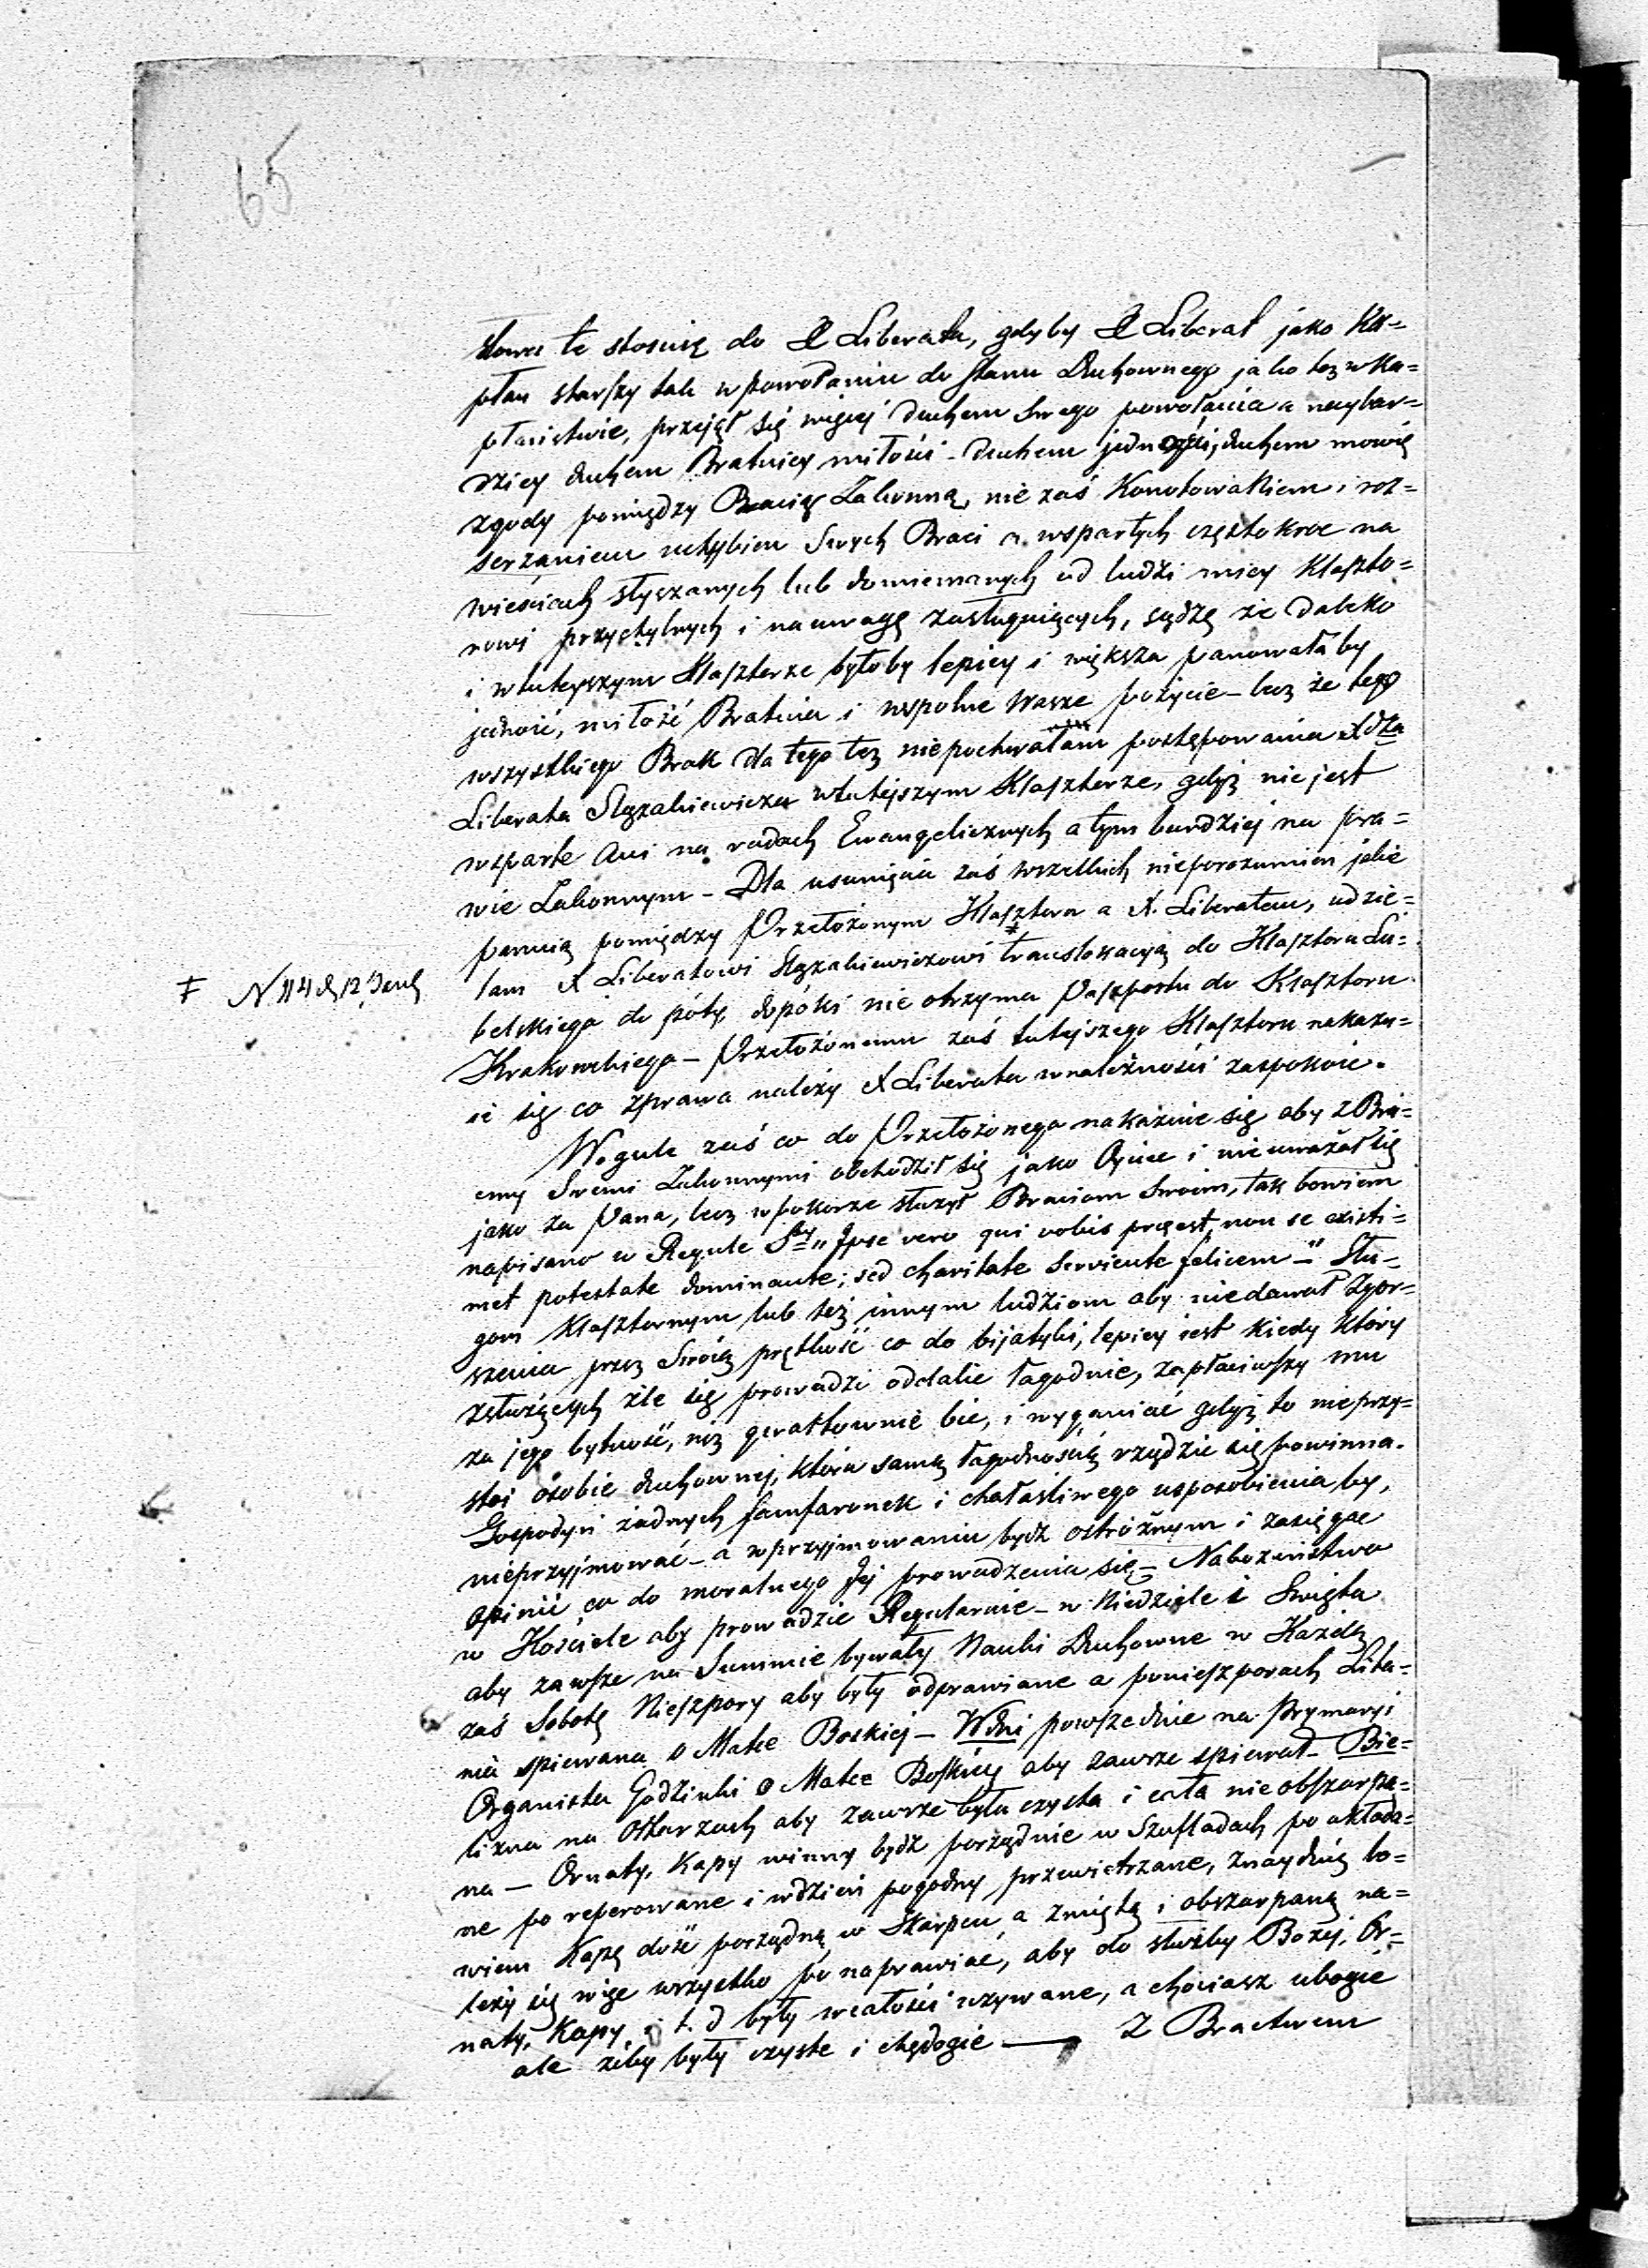 65
słowa te stosuię do X Liberata, gdyby X Liberat jako Ka=
płan starszy tak w powołaniu do stanu Duchownego jako toz w Ka=
płaństwie, przejął się więcej duchem swego powołania a naybar=
dziey duchem Bratniey miłości - duchem jedności, duchem mowię
zgody pomiędzy Bracią Zakonną, nie zaś Konotowaniem i roz=
serzaniem uchybien Swych Braci a wspartych częstokroc na
wieściach słyszanych lub domiemanych od ludzi mniey Klaszto=
rowi przychylnych i na uwagę zasługuiących, sądzę że daleko
i w tuteyszym Klasztorze byłoby lepiey i większa panowałaby
jedność, miłość Bratnia i wspolne Wasze pożycie - lecz że tego
wszystkiego Brak dla tego tez niepochwalam postępowania Xdza
Liberata Slązakiewicza w tutejszym Klasztorze, gdyż nie jest
wsparte Ani na radach Ewangelicznych a tym bardziej na pra=
wie Zakonnym - Dla usunięcia zaś wszelkich nieporozumien jakie
panuią pomiędzy Przełożonym Klasztoru a X. Liberatem, udzie=
lam X Liberatowi Slązakiewiczowi translokacyą do Klasztoru Lu=
belskiego do póty, dopóki nie otrzyma Paszportu do Klasztoru
‡ N 114 d 12
Krakowskiego - Przełożonemu zaś tutejszego Klasztoru nakazu=
ie się co z prawa należy X Liberata w należności zaspokoic.
Wogule zaś co do Przełożonego nakazuie się aby z Bra=
cmy Swemi Zakonnymi obchodził się jako Ojciec i nie uważał się
jako za Pana, lecz w pokorze służył Braciom Swoim, tak bowiem
napisano w Regule Sty „Ipse vero qui vobis pręest, non se existi=
met potestate dominante; sed charitate serviente felicem -" Słu=
gom Klasztornym lub też innym ludziom aby niedawał Zgor=
szenia przez Swoią prętkość co do bijatyki, lepiey jest kiedy który
z służących źle się prowadzi oddalic łagodnie, zapłaciwszy mu
za jego bytność, niż gwałtownie bic, i wyganiać gdyż to nie przy=
stoi osobie duchownej, która samą łagodnością rządzic się powinna.
Gospodyń żadnych famfaronek i chałaśliwego usposobienia by,
nieprzyjmować - a w przyjmowaniu bydz ostrożnym i zasięgac
opinii co do moralnego Jej prowadzenia się - Nabozeństwo
w Kościele aby prowadzic Regularnie - w Niedziele i Swięta
aby zawsze na Summie bywały Nauki Duchowne w Każdą
zaś Sobotę Nieszpory aby były odprawiane a ponieszporach Lita=
nia spiewana o Matce Boskiej - W dni powszednie na Prymaryi
Organista Godzinki o Matce Boskiey aby zawsze spiewał - Bie=
lizna na Ołtarzach aby zawsze była czysta i cała nie obszarpa=
na - Ornaty, Kapy winny bydz porządnie w Szufladach poukłada=
ne poreperowane i w dzień pogodny przewietrzane, znayduię bo=
wiem Kapę dość porządną w Skarpcu, a zmiętą i obszarpaną na=
leży się więc wszystko ponaprawiać, aby do służby Bożej, Or=
naty, Kapy i t. d były w całości uzywane, a chociasz ubogie
ale żeby były czyste i chędogie — Z Bractwem